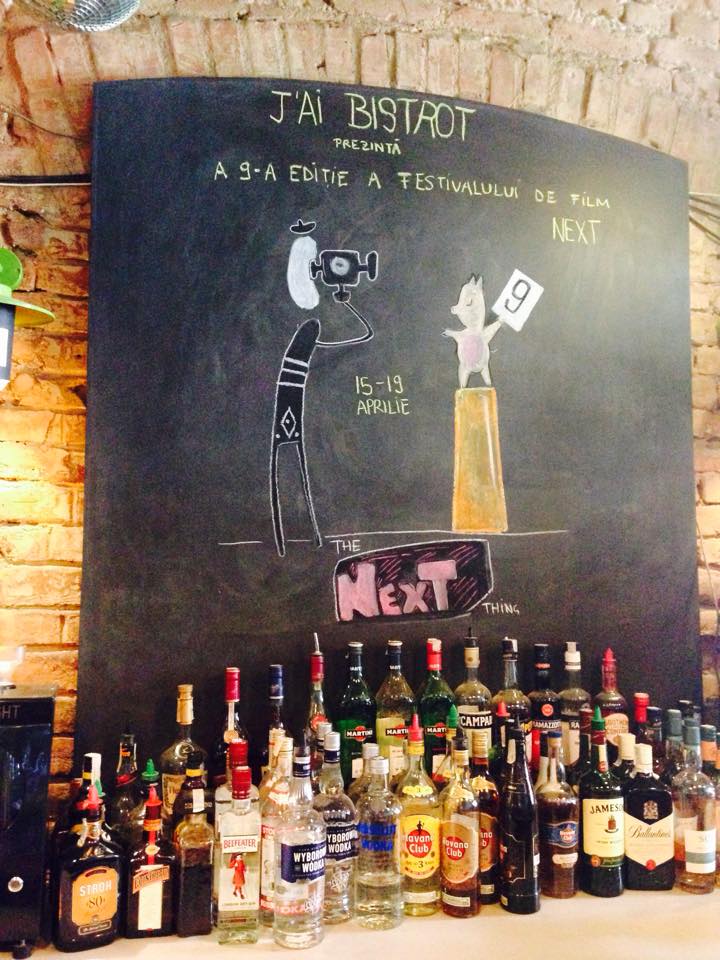 J'AI BISTROT
PREZINTĂ
A 9-A EDIȚIE A FESTIVALULUI DE FILM
NEXT
9
15-19
APRILIE
THE
NEXT
THING
MARTINI
MARTINI
MARTINI
CAMPARI
RAMAZZOTTI
STROH
80
COINTREAU
BEEFEATER
WYBOROWA
WÓDKA
WYBOROWA
WÓDKA
ABSOLUT
VODKA
Havana
Club
3
Havana
Club
JAMESON
Ballantine's